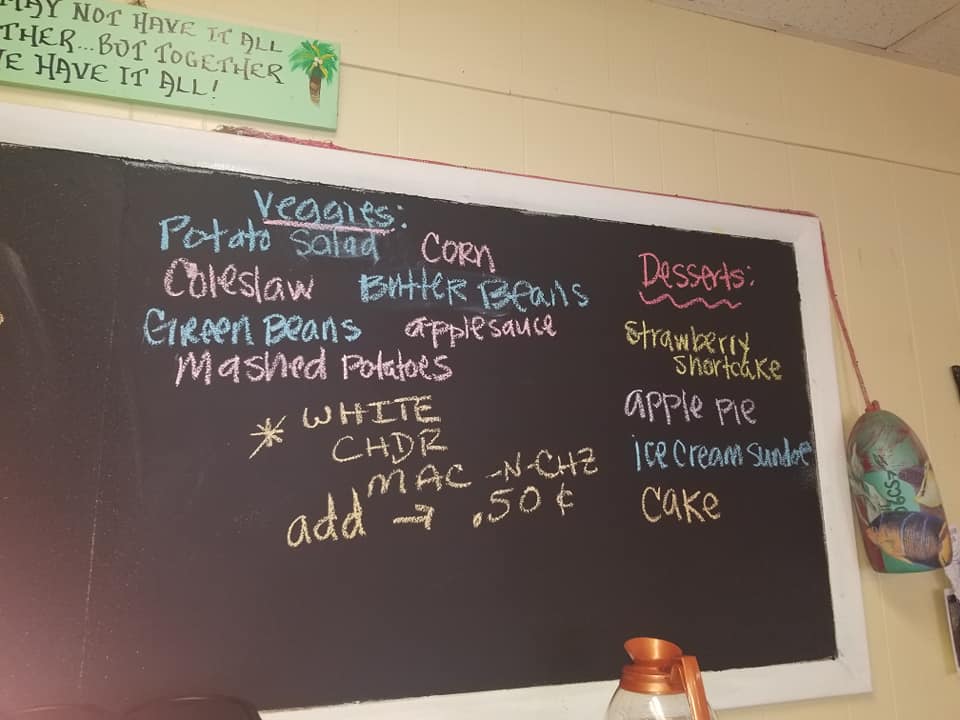 MAY NOT HAVE IT ALL
THER...BUT TOGETHER
E HAVE IT ALL!
Veggies:
Potato Salad Corn
Coleslaw Butter Beans
Green Beans applesauce
Mashed Potatoes
* WHITE
CHDR
MAC -N-CHZ
add → .50 ¢
Desserts:
Strawberry
shortcake
apple pie
ice cream sundae
cake